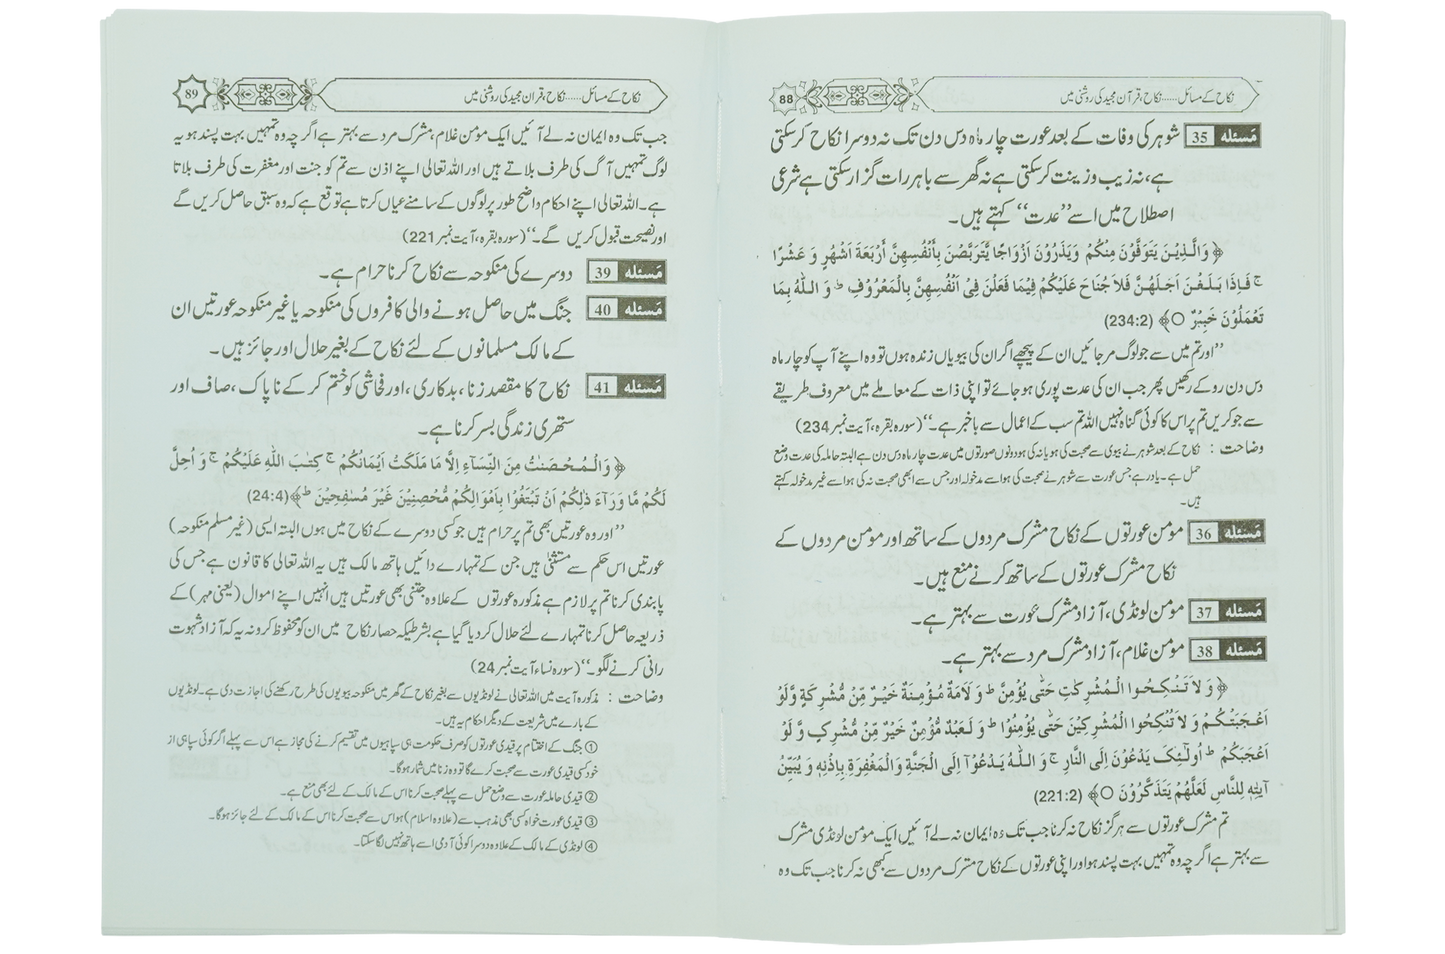 نکاح کے مسائل ...... نکاح، قرآن مجید کی روشنی میں
88
مَسئله 35 شوہر کی وفات کے بعد عورت چار ماہ دس دن تک نہ دوسرا نکاح کرسکتی
ہے، نہ زیب و زینت کرسکتی ہے نہ گھر سے باہر رات گزار سکتی ہے شرعی
اصطلاح میں اسے ’’عدت‘‘ کہتے ہیں۔
﴿ وَالَّذِيْنَ يَتَوَفَّوْنَ مِنْكُمْ وَيَذَرُوْنَ اَزْوَاجًا يَّتَرَبَّصْنَ بِأَنْفُسِهِنَّ أَرْبَعَةَ اَشْهُرٍ وَ عَشْرًا
ج فَاِذَا بَلَغْنَ اَجَلَهُنَّ فَلاَ جُنَاحَ عَلَيْكُمْ فِيْمَا فَعَلْنَ فِىْ اَنْفُسِهِنَّ بِالْمَعْرُوْفِ ط وَ اللّٰهُ بِمَا
تَعْمَلُوْنَ خَبِيْرٌ ○ ﴾ (234:2)
’’اور تم میں سے جو لوگ مر جائیں ان کے پیچھے اگر ان کی بیویاں زندہ ہوں تو وہ اپنے آپ کو چار ماہ
دس دن روکے رکھیں پھر جب ان کی عدت پوری ہو جائے تو اپنی ذات کے معاملے میں معروف طریقے
سے جو کریں تم پر اس کا کوئی گناہ نہیں اللہ تم سب کے اعمال سے باخبر ہے۔‘‘ (سورہ بقرہ، آیت نمبر 234)
وضاحت : نکاح کے بعد شوہر نے بیوی سے صحبت کی ہو یا نہ کی ہو دونوں صورتوں میں عدت چار ماہ دس دن ہے البتہ حاملہ کی عدت وضع
حمل ہے۔ یاد رہے جس عورت سے شوہر نے صحبت کی ہو اسے مدخولہ اور جس سے ابھی صحبت نہ کی ہو اسے غیر مدخولہ کہتے
ہیں۔
مَسئله 36 مؤمن عورتوں کے نکاح مشرک مردوں کے ساتھ اور مؤمن مردوں کے
نکاح مشرک عورتوں کے ساتھ کرنے منع ہیں۔
مَسئله 37 مؤمن لونڈی، آزاد مشرک عورت سے بہتر ہے۔
مَسئله 38 مؤمن غلام، آزاد مشرک مرد سے بہتر ہے۔
﴿ وَ لاَ تَنْكِحُوا الْمُشْرِكٰتِ حَتّٰى يُؤْمِنَّ ط وَ لَاَمَةٌ مُّؤْمِنَةٌ خَيْرٌ مِّنْ مُّشْرِكَةٍ وَّ لَوْ
اَعْجَبَتْكُمْ وَ لاَ تُنْكِحُوا الْمُشْرِكِيْنَ حَتّٰى يُؤْمِنُوْا ط وَ لَعَبْدٌ مُّؤْمِنٌ خَيْرٌ مِّنْ مُّشْرِكٍ وَّ لَوْ
اَعْجَبَكُمْ ط اُولٰٓئِكَ يَدْعُوْنَ اِلَى النَّارِ ج وَ اللّٰهُ يَدْعُوْٓا اِلَى الْجَنَّةِ وَالْمَغْفِرَةِ بِاِذْنِهٖ وَ يُبَيِّنُ
اٰيٰتِهٖ لِلنَّاسِ لَعَلَّهُمْ يَتَذَكَّرُوْنَ ○ ﴾ (221:2)
تم مشرک عورتوں سے ہرگز نکاح نہ کرنا جب تک وہ ایمان نہ لے آئیں ایک مؤمن لونڈی مشرک
سے بہتر ہے اگرچہ وہ تمہیں بہت پسند ہو اور اپنی عورتوں کے نکاح مشرک مردوں سے کبھی نہ کرنا جب تک وہ
نکاح کے مسائل ...... نکاح، قرآن مجید کی روشنی میں
89
جب تک وہ ایمان نہ لے آئیں ایک مؤمن غلام، مشرک مرد سے بہتر ہے اگرچہ وہ تمہیں بہت پسند ہو یہ
لوگ تمہیں آگ کی طرف بلاتے ہیں اور اللہ تعالی اپنے اذن سے تم کو جنت اور مغفرت کی طرف بلاتا
ہے۔ اللہ تعالی اپنے احکام واضح طور پر لوگوں کے سامنے عیاں کرتا ہے توقع ہے کہ وہ سبق حاصل کریں گے
اور نصیحت قبول کریں گے۔‘‘ (سورہ بقرہ، آیت نمبر 221)
مَسئله 39 دوسرے کی منکوحہ سے نکاح کرنا حرام ہے۔
مَسئله 40 جنگ میں حاصل ہونے والی کافروں کی منکوحہ یا غیر منکوحہ عورتیں ان
کے مالک مسلمانوں کے لئے نکاح کے بغیر حلال اور جائز ہیں۔
مَسئله 41 نکاح کا مقصد زنا، بدکاری، اور فحاشی کو ختم کر کے ناپاک، صاف اور
ستھری زندگی بسر کرنا ہے۔
﴿ وَالْمُحْصَنٰتُ مِنَ النِّسَآءِ اِلاَّ مَا مَلَكَتْ اَيْمَانُكُمْ ج كِتٰبَ اللّٰهِ عَلَيْكُمْ ج وَ اُحِلَّ
لَكُمْ مَّا وَرَآءَ ذٰلِكُمْ اَنْ تَبْتَغُوْا بِاَمْوَالِكُمْ مُّحْصِنِيْنَ غَيْرَ مُسٰفِحِيْنَ ط ﴾ (24:4)
’’اور وہ عورتیں بھی تم پر حرام ہیں جو کسی دوسرے کے نکاح میں ہوں البتہ ایسی (غیر مسلم منکوحہ)
عورتیں اس حکم سے مستثنیٰ ہیں جن کے تمہارے دائیں ہاتھ مالک ہیں یہ اللہ تعالی کا قانون ہے جس کی
پابندی کرنا تم پر لازم ہے مذکورہ عورتوں کے علاوہ جتنی بھی عورتیں ہیں انہیں اپنے اموال (یعنی مہر) کے
ذریعہ حاصل کرنا تمہارے لئے حلال کر دیا گیا ہے بشرطیکہ حصار نکاح میں ان کو محفوظ کرو نہ یہ کہ آزاد شہوت
رانی کرنے لگو۔‘‘ (سورہ نساء آیت نمبر 24)
وضاحت : مذکورہ آیت میں اللہ تعالی نے لونڈیوں سے بغیر نکاح کے گھر میں منکوحہ بیویوں کی طرح رکھنے کی اجازت دی ہے۔ لونڈیوں
کے بارے میں شریعت کے دیگر احکام یہ ہیں۔
① جنگ کے اختتام پر قیدی عورتوں کو صرف حکومت ہی سپاہیوں میں تقسیم کرنے کی مجاز ہے اس سے پہلے اگر کوئی سپاہی از
خود کسی قیدی عورت سے صحبت کرے گا تو وہ زنا میں شمار ہوگا۔
② قیدی حاملہ عورت سے وضع حمل سے پہلے صحبت کرنا اس کے مالک کے لئے بھی منع ہے۔
③ قیدی عورت خواہ کسی بھی مذہب سے (علاوہ اسلام) ہو اس سے صحبت کرنا اس کے مالک کے لئے جائز ہوگا۔
④ لونڈی کے مالک کے علاوہ دوسرا کوئی آدمی اسے ہاتھ نہیں لگا سکتا۔